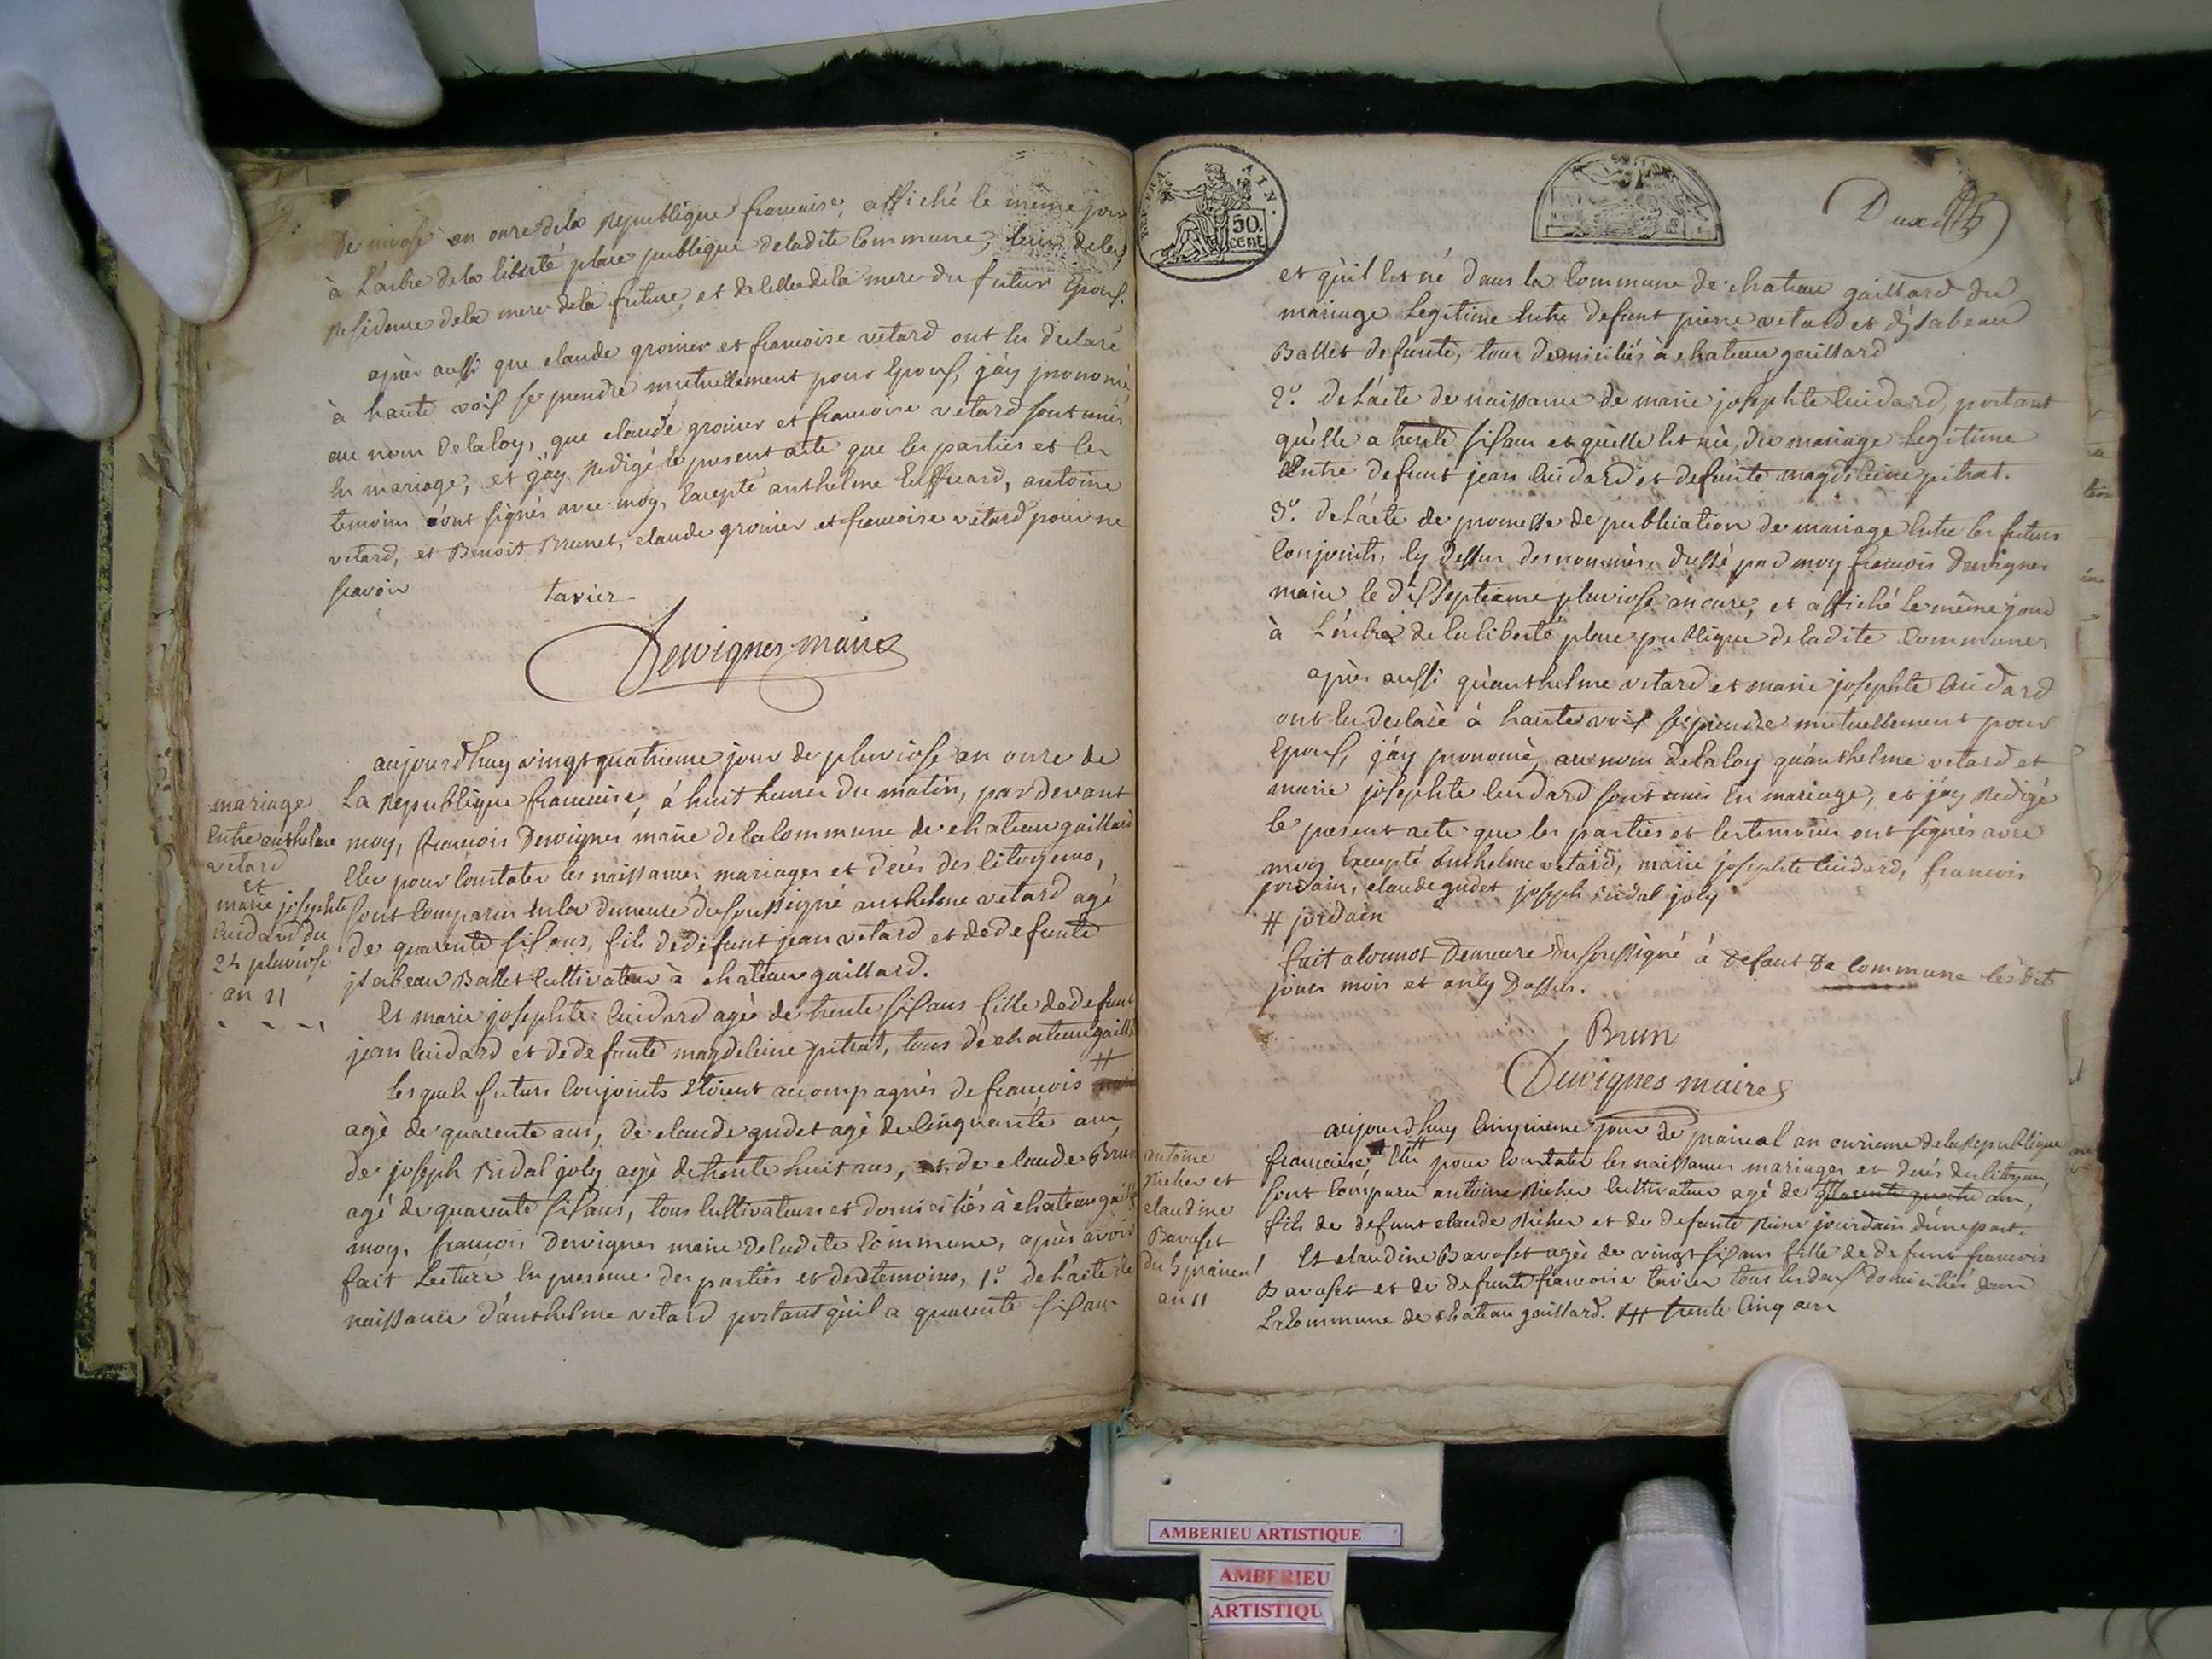 De nivose an onze dela Republique francaise, affiché le même jour
à l'arbre dela liberté place publique deladite Commune, lieu dela
Residence dela mere dela future, et de celle dela mere du futur Epoux.
après aussi que claude gronier et francoise vetard ont eu declaré
à haute voix se prendre mutuellement pour Epoux, j'ay prononcé
au nom dela loy, que claude gronier et francoise vetard sont unis
En mariage, et j'ay Redigé le present acte que les parties et les
temoins ont signés avec moy, Excepté anthelme, antoine
vetard, et Benoit Brunet, claude gronier et francoise vetard pour ne
scavoir
tavier
Dervignes maire
mariage
Entre anthelme
vetard
et
marie josephte
Cuidard du
24 pluviose
an 11
aujourdhuy vingt quatrieme jour de pluviose an onze de
La Republique francaise, à huit heures du matin, pardevant
moy, francois Dervignes maire dela Commune de chateau gaillard
Elu pour Constater les naissances mariages et decès des Citoyens,
sont Comparus En la demeure du soussigné anthelme vetard agé
de quarente six ans, fils de defunt jean vetard et de defunte
jsabeau Ballet Cultivateur à chateau gaillard.
Et marie josephte Cuidard agée de trente six ans fille de defunt
jean Cuidard et de defunte magdeleine pitrat, tous de chateau gaill
Lesquels futurs Conjoints Etoient accompagnés de francois #
agé de quarente ans, de claude gudet agé de Cinquante ans,
de joseph Ridal joly agé de trente huit ans, et de claude Brun
agé de quarente six ans, tous Cultivateurs et domiciliés à chateau gaill
moy, francois Dervignes maire deladite Commune, après avoir
fait Lecture En presence des parties et des temoins, 1.º de l'acte de
naissance d'anthelme vetard portant qu'il a quarente six ans
50.
cent
Deux
et qu'il Est né dans la Commune de chateau gaillard du
mariage Legitime Entre defunt pierre vetard et d'jsabeau
Ballet defunte, tous domiciliés à chateau gaillard
2.º de l'acte de naissance de marie josephte Cuidard, portant
qu'elle a trente six ans et qu'elle Est née, du mariage Legitime
Entre defunt jean Cuidard et defunte magdeleine pitrat.
3.º de l'acte de promesse de publication de mariage Entre les futurs
Conjoints, Cy dessus denommés, dressé par moy francois Dervignes
maire le dix septieme pluviose an onze, et affiché le même jour
à L'arbre dela liberté place publique deladite Commune
après aussi qu'anthelme vetard et marie josephte Cuidard
ont Eu declaré à haute voix se prendre mutuellement pour
Epoux, j'ay prononcé au nom dela loy qu'anthelme vetard et
marie josephte Cuidard sont unis En mariage, et j'ay Redigé
le present acte que les parties et les temoins ont signés avec
moy Excepté anthelme vetard, marie josephte Cuidard, francois
jordain, claude gudet joseph Ridal joly
# jordain
fait Demeure du soussigné à defaut de Commune lesdits
jours mois et an Cy dessus.
Brun
Dervignes maire
antoine
Richer et
claudine
Bavoset
du 5 prairial
an 11
aujourdhuy Cinquieme jour de prairial an onzieme dela Republique
francaise, Elu pour Constater les naissances mariages et decès des Citoyens,
sont Comparu antoine Richer Cultivateur agé de quarente quatre ans,
fils de defunt claude Richer et de defunte Reine jourdain d'une part.
Et claudine Bavoset agée de vingt six ans fille de defunt francois
Bavoset et de defunte francoise tavier tous les deux domiciliés dans
La Commune de chateau gaillard. # trente Cinq ans
AMBERIEU ARTISTIQUE
AMBERIEU
ARTISTIQU